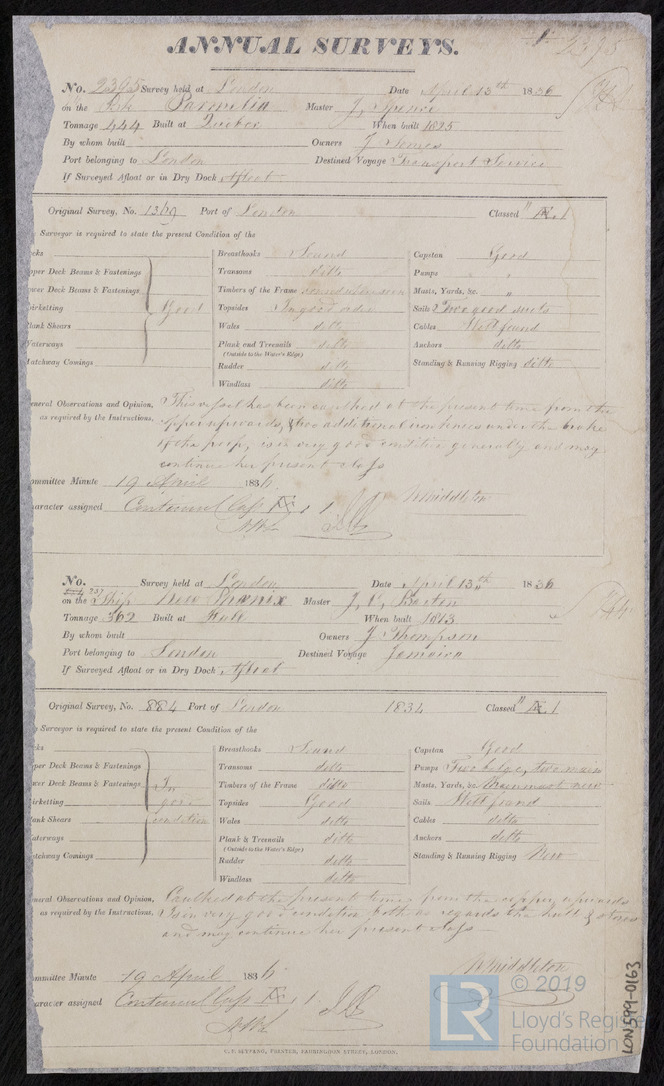 2395
ANNUAL SURVEYS.
No. 2395 Survey held at London Date April 13th 1836
on the Bk Parmelia Master J. Spence
Tonnage 444 Built at Quebec When built 1825
By whom built Owners J Somes
Port belonging to London Destined Voyage Transport Service
If Surveyed Afloat or in Dry Dock Afloat
Original Survey, No. 1369 Port of London Classed "Æ 1
Surveyor is required to state the present Condition of the
cks Breasthooks Sound Capstan Good
pper Deck Beams & Fastenings Transoms ditto Pumps "
ower Deck Beams & Fastenings Timbers of the Frame Masts, Yards, &c. "
irketting Good Topsides In good order Sails Two good suits
lank Shears Wales ditto Cables Well found
Vaterways Plank and Treenails ditto Anchors ditto
(Outside to the Water's Edge)
latchway Comings Rudder ditto Standing & Running Rigging ditto
Windlass ditto
eneral Observations and Opinion, This vessel has been caulked at the present time from the
as required by the Instructions. upper upwards, & two additional iron knees under the brake
of the poop, is in very good condition generally and may
continue her present class
ommittee Minute 19 April 1836 W Middleton
aracter assigned Continued Class Æ 1
No. 237 Survey held at London Date April 13th 1836
on the Ship New Phoenix Master J. C. Barton
Tonnage 362 Built at Hull When built 1813
By whom built Owners J Thompson
Port belonging to London Destined Voyage Jamaica
If Surveyed Afloat or in Dry Dock Afloat
Original Survey, No. 884 Port of London 1834 Classed "Æ 1
Surveyor is required to state the present Condition of the
cks Breasthooks Sound Capstan Good
per Deck Beams & Fastenings Transoms ditto Pumps Two bilge, two main
wer Deck Beams & Fastenings In Timbers of the Frame ditto Masts, Yards, &c. Mainmast new
irketting good Topsides Good Sails Well found
ank Shears condition Wales ditto Cables ditto
aterways Plank & Treenails ditto Anchors ditto
(Outside to the Water's Edge)
tchway Comings Rudder ditto Standing & Running Rigging New
Windlass ditto
neral Observations and Opinion, Caulked at the present time from the upper upwards
as required by the Instructions. Is in very good condition both as regards the hull & stores
and may continue her present class
W Middleton
ommittee Minute 19 April 1836
aracter assigned Continued Class Æ 1
C. F. SEYFANG, PRINTER, FARRINGDON STREET, LONDON.
© 2019
LR Lloyd's Register
Foundation
LON599-0163